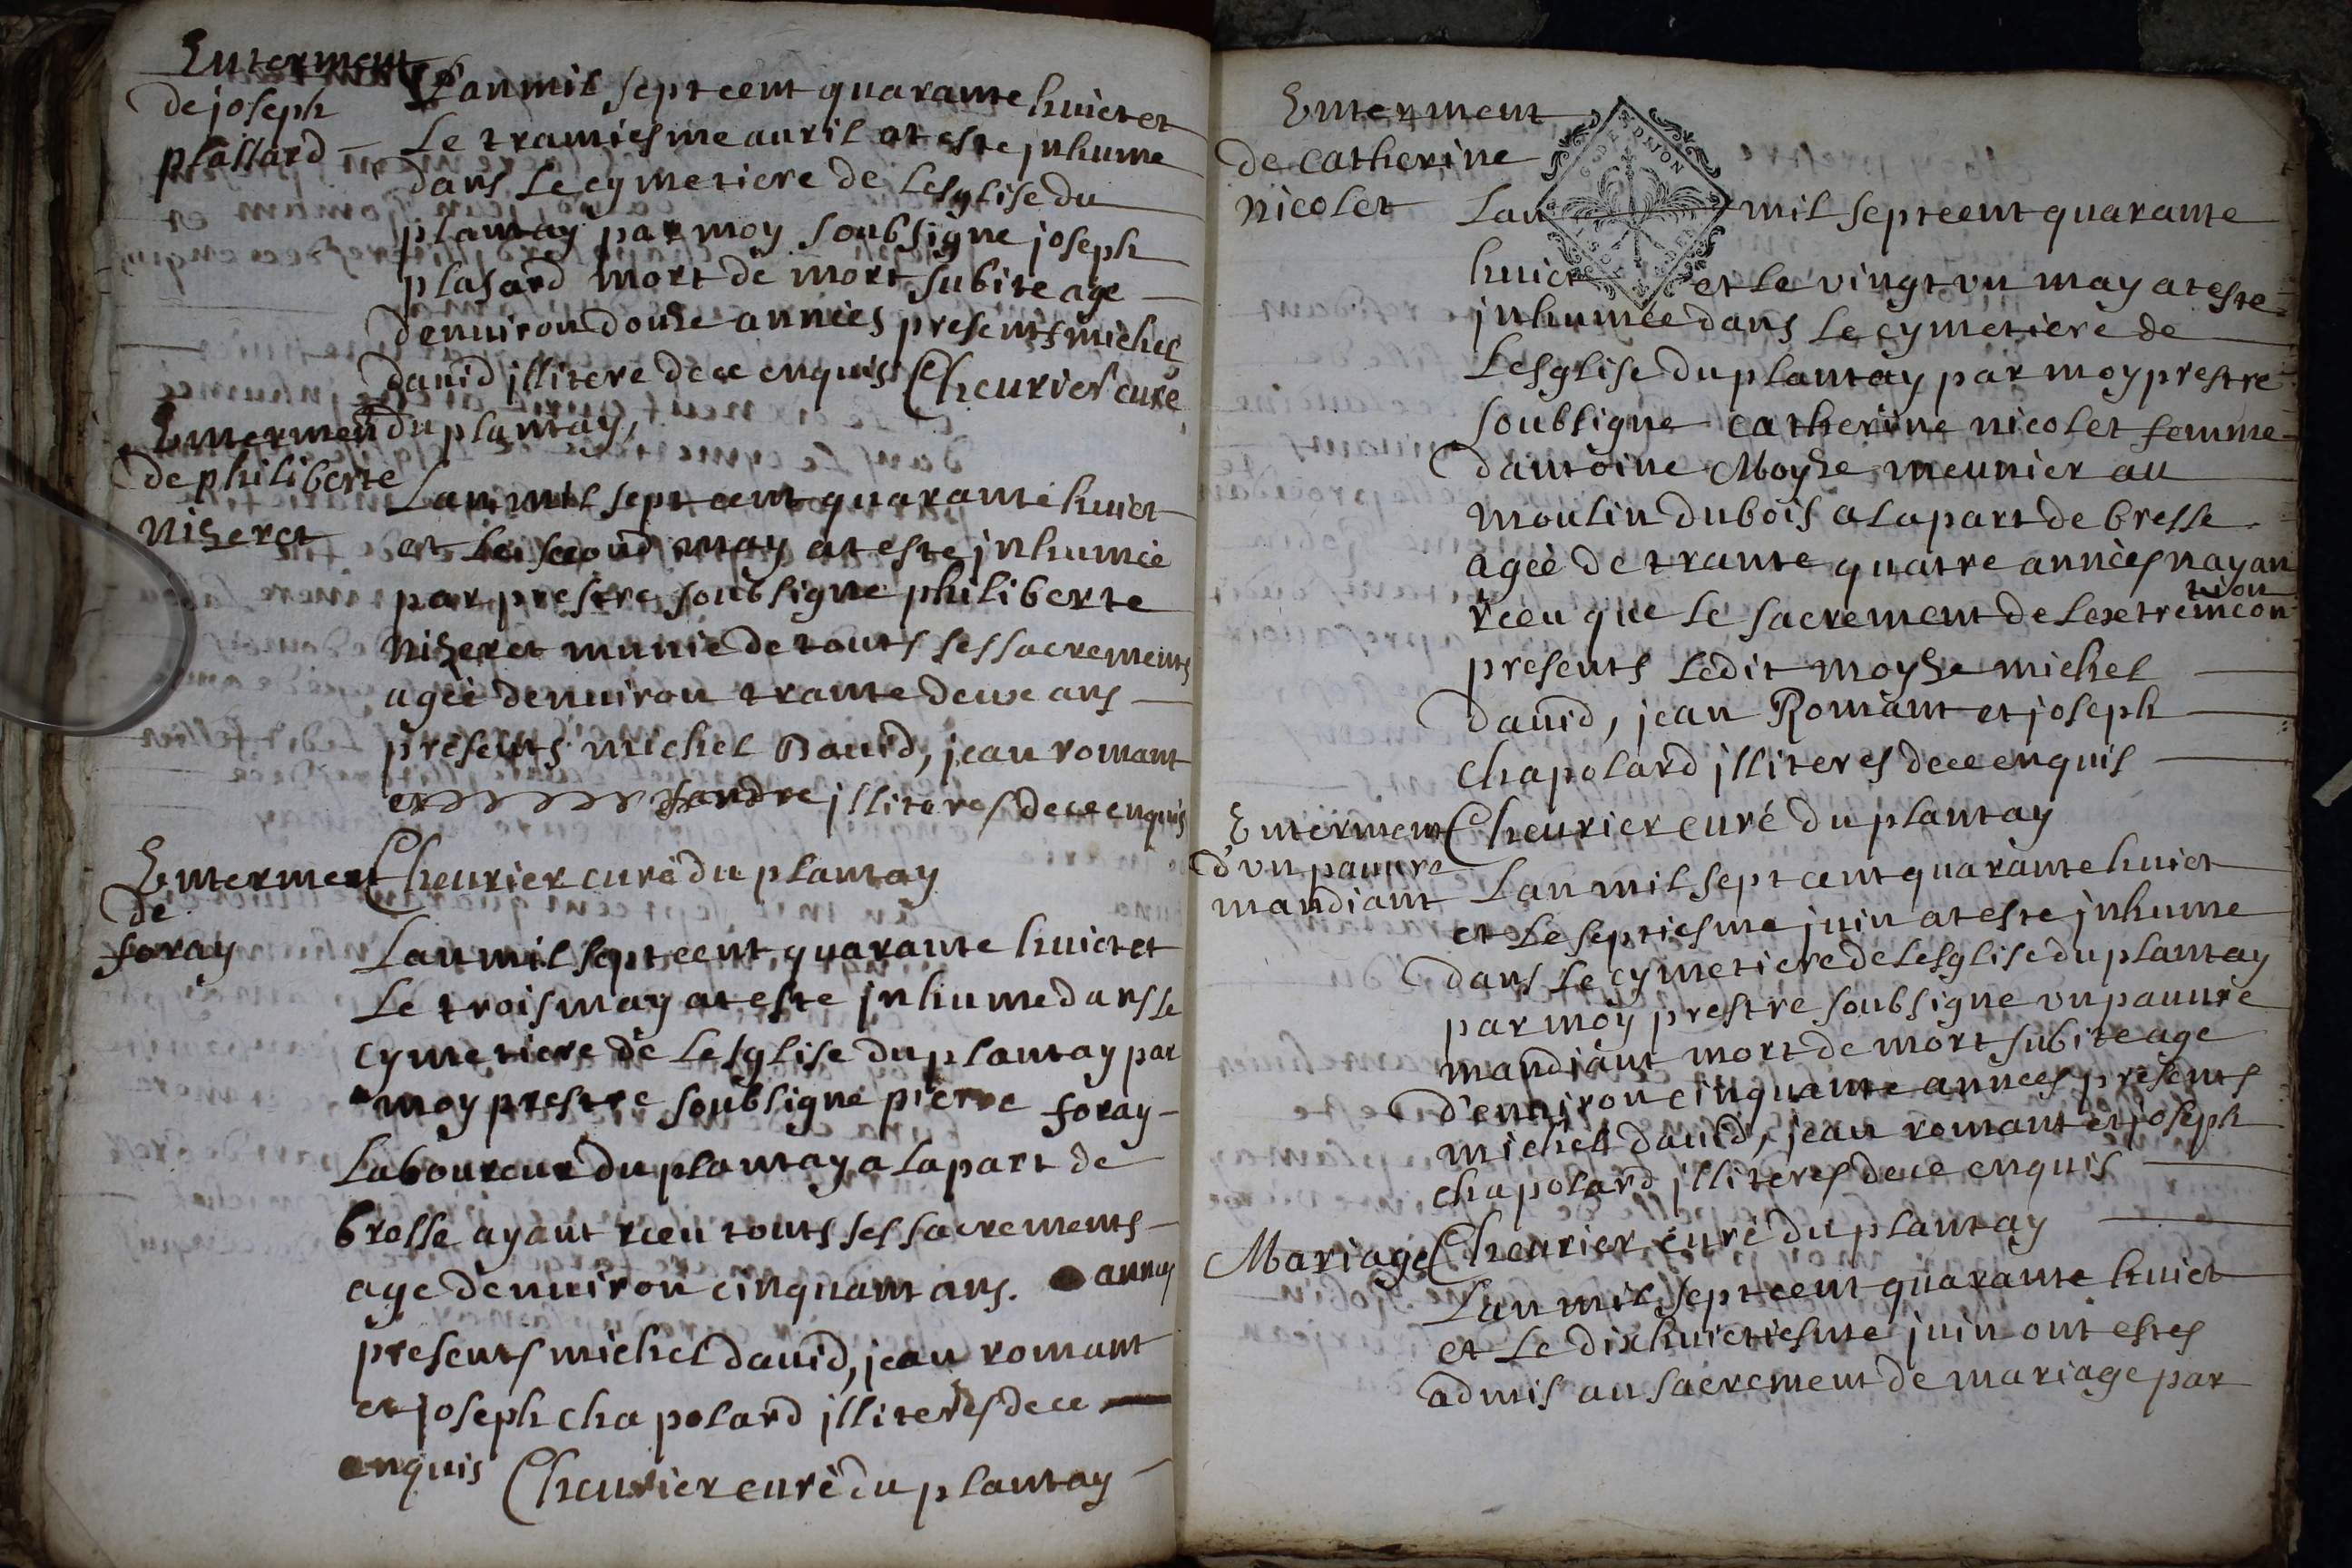 Enterment
de joseph
plassard
L'an mil sept cent quarante huict et
le trantiesme auril at este inhume
dans le cymetiere de lesglise du
plantay par moy soubsigne joseph
plasard mort de mort subite age
denuiron douze annees presents michel
dauid illitere de ce enquis Cheurier curé
du plantay,
Enterment
de philiberte
Nizeret
Lan mil sept cent quarante huict
et le second may at este inhumée
par prestre soubsigne philiberte
Nizeret munie de touts ses sacrements
ageé denuiron trante deux ans
presents michel Dauid, jean romant
et illiteres de ce enquis
Cheurier curé du plantay
Enterment
de
foray
Lan mil sept cent quarante huict et
le trois may at este inhume dans le
cymetiere de lesglise du plantay par
moy prestre soubsigne pierre foray
laboureur du plantay a la part de
bresse ayant rceu touts ses sacrements
age denuiron cinquant ans. annes
presents michel dauid, jean romant
et joseph chapolard illiteres de ce
enquis Cheurier curé du plantay
Enterment
de catherine
nicolet
Lan mil sept cent quarante
huict et le vingt vn may at este
inhumée dans le cymetiere de
lesglise du plantay par moy prestre
soubsigne catherine nicolet femme
dantoine Moyze meunier au
moulin du bois a la part de bresse
ageé de trante quatre années nayan
rceu que le sacrement de lextremeon
tion
presents ledit moyze michel
dauid, jean Romant et joseph
chapolard illiteres de ce enquis
Cheurier curé du plantay
Enterment
d'vn pauure
mandiant
Lan mil sept cent quarante huict
et le septiesme juin at este inhume
dans le cymetiere de lesglise du plantay
par moy prestre soubsigne vn pauure
mandiant mort de mort subite age
d'enuiron cinquante années presents
michel dauid, jean romant et joseph
chapolard illiteres de ce enquis
Cheurier curé du plantay
Mariage
Lan mil sept cent quarante huict
et le dixhuictiesme juin ont estes
admis au sacrement de mariage par